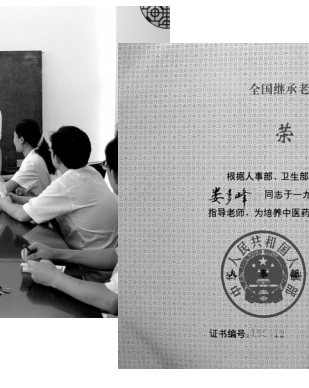 全国继承老
荣
根据人事部、卫生部
娄多峰 同志于一九
指导老师,为培养中医药
中华人民共和国人事部
证书编号